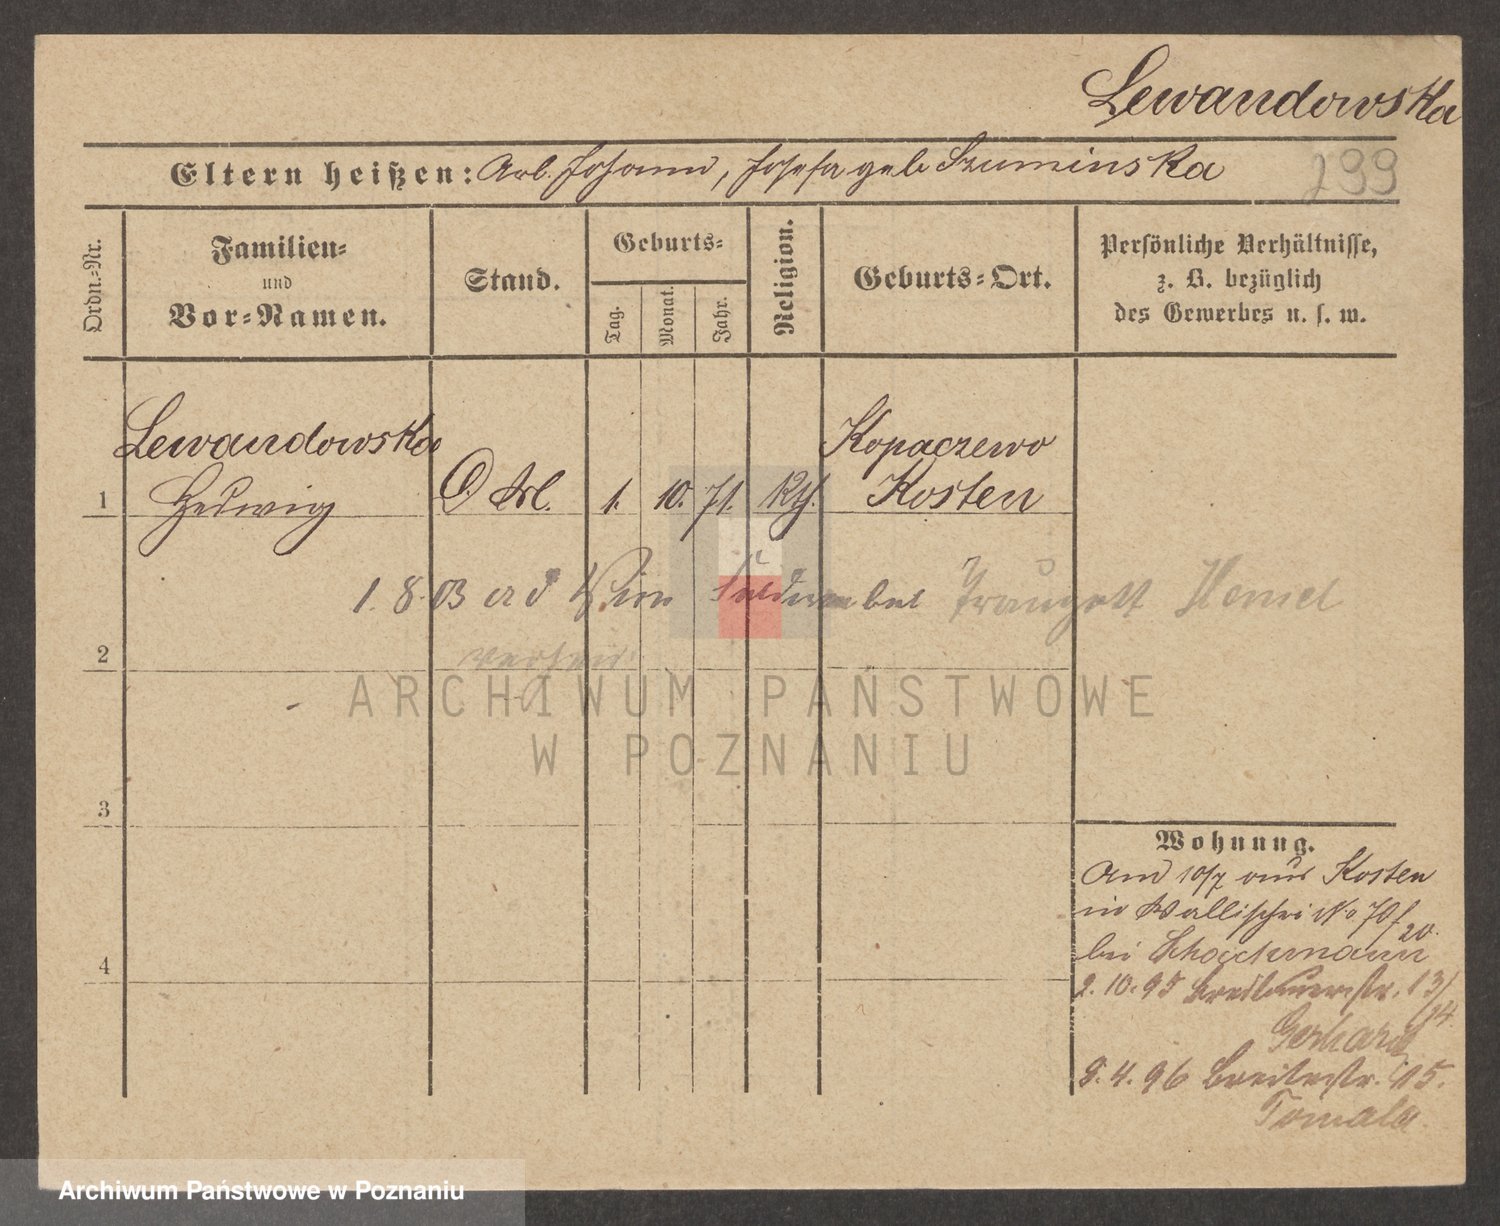 Lewandowska
Eltern heißen: Arb. Johann, Josefa geb Szuminska
299
Ordn.-Nr.
Familien-
und
Vor-Namen.
Stand.
Geburts-
Tag.
Monat.
Jahr.
Religion.
Geburts-Ort.
Persönliche Verhältnisse,
z. B. bezüglich
des Gewerbes u. s. w.
Lewandowska
Kopaczewo
1 Hedwig 1. 10. 71. Kth. Kosten
1. 8. 03 Traugott
2
3
4
Wohnung.
Am 10/7 aus Kosten
in Wallischei No 70f
bei
20.
2. 10. 95 13/
14
Gerhard
8. 4. 96 Breitestr. 15.
Tomala
ARCHIWUM PAŃSTWOWE
W POZNANIU
Archiwum Państwowe w Poznaniu